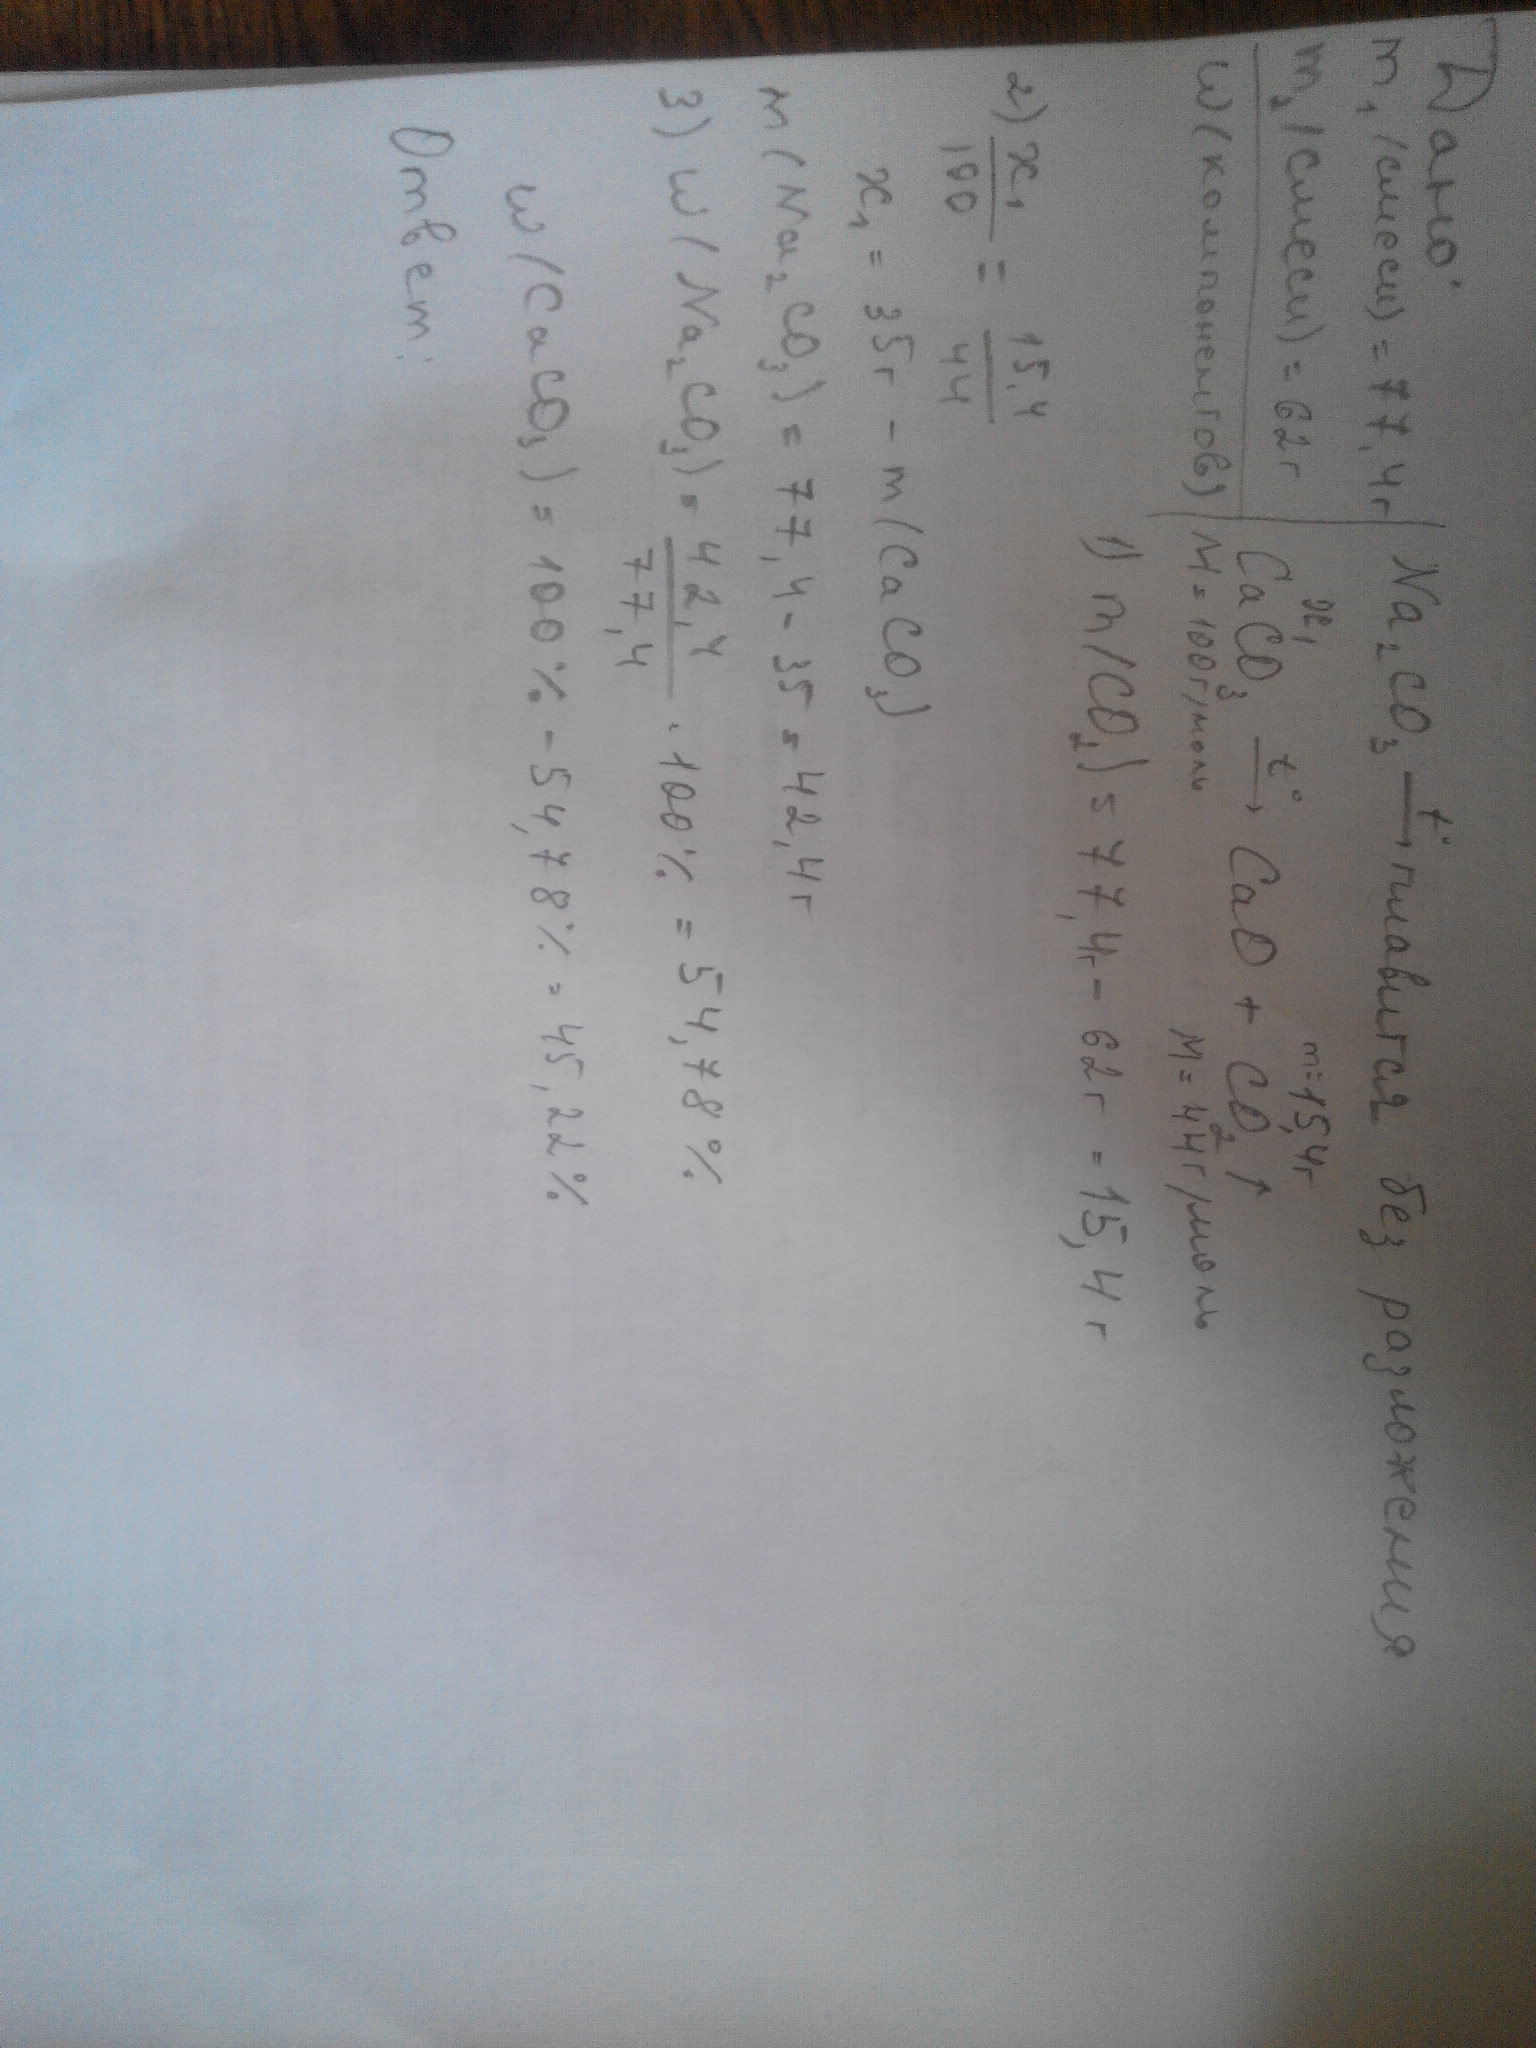 Дано:
m₁(смеси) = 77,4г
m₂(смеси) = 62г
w(компонентов)
Na₂CO₃ t°→ плавится без разложения
x₁ m=15,4г
CaCO₃ t°→ CaO + CO₂↑
M=100г/моль M=44г/моль
1) m(CO₂) = 77,4г - 62г = 15,4г
2) x₁/100 = 15,4/44
x₁ = 35г - m(CaCO₃)
m(Na₂CO₃) = 77,4 - 35 = 42,4г
3) w(Na₂CO₃) = 42,4/77,4 · 100% = 54,78%
w(CaCO₃) = 100% - 54,78% = 45,22%
Ответ: